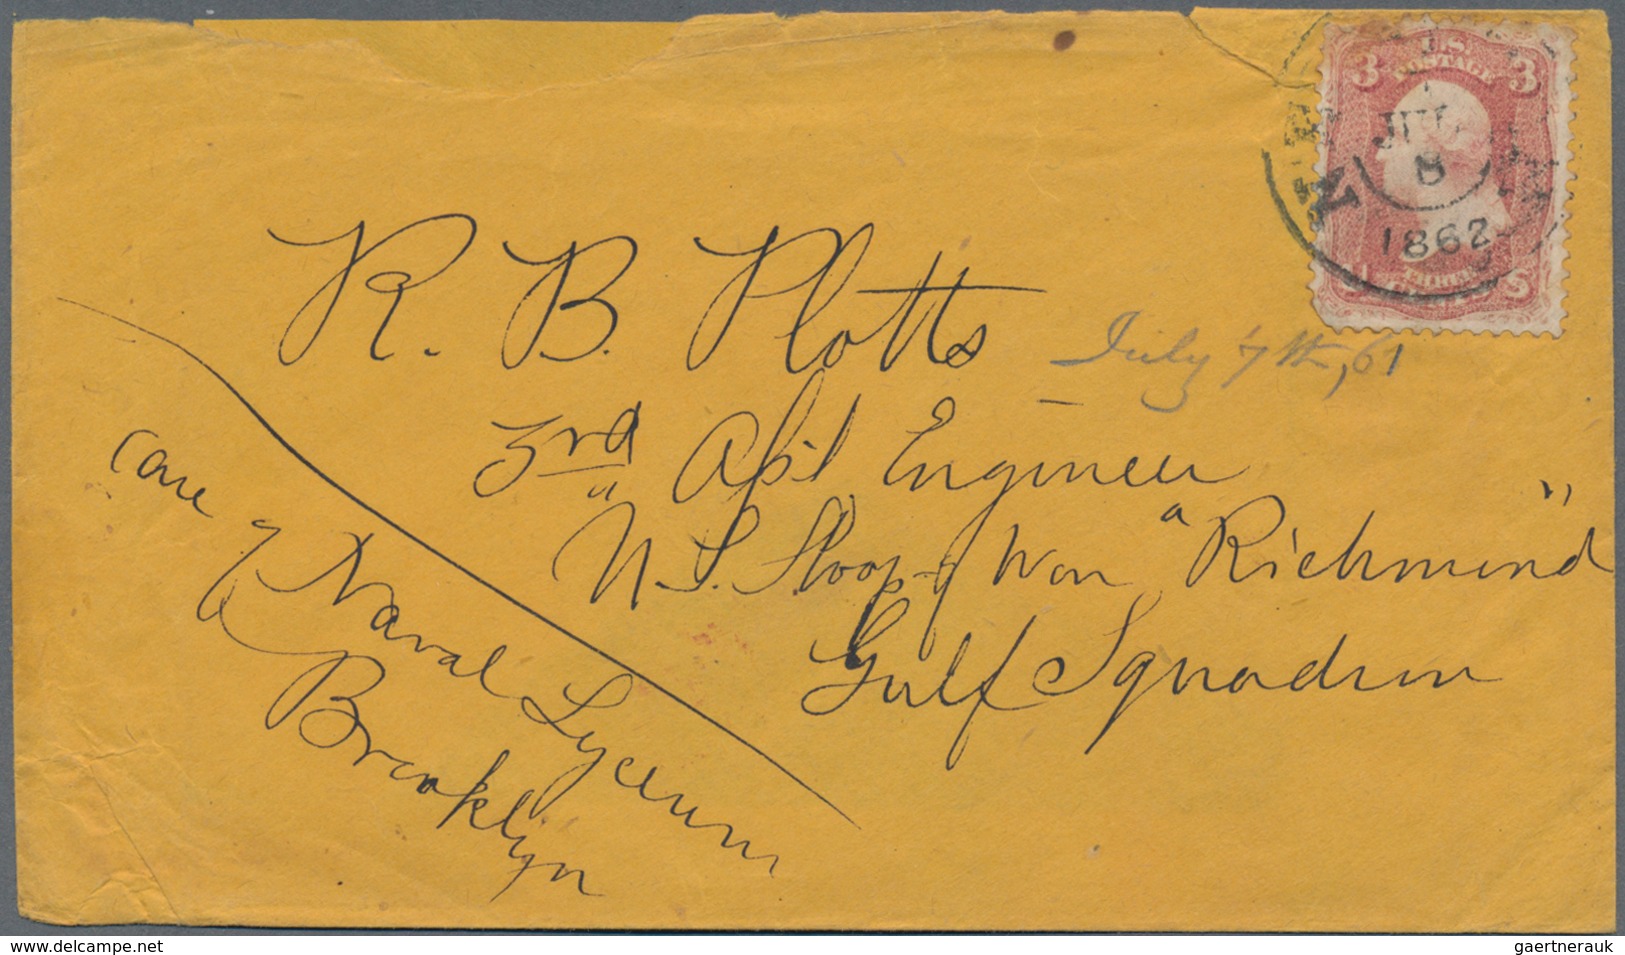 U.S.
POSTAGE
3 3
JUL
8
1862
U S
R. B. Plotts
July 7th, 61
3rd Asst Engineer
U. S. Sloop of War "Richmond"
Gulf Squadron
Care of Naval Lyceum
Brooklyn
www.delcampe.net
gaertnerauk